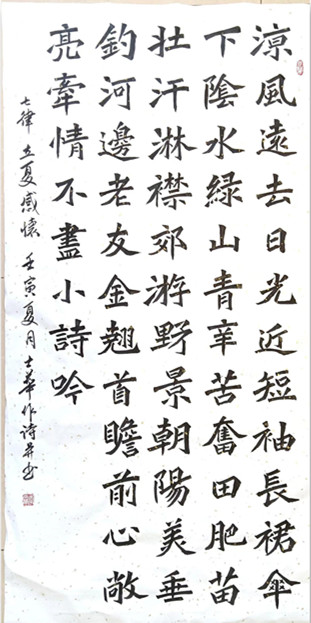 涼風遠去日光近短袖長裙傘
下陰水綠山青辛苦奮田肥苗
壯汗淋襟郊游野景朝陽美垂
釣河邊老友金翹首瞻前心敞
亮牽情不盡小詩吟
七律 立夏感懷 壬寅夏月士華作诗并书